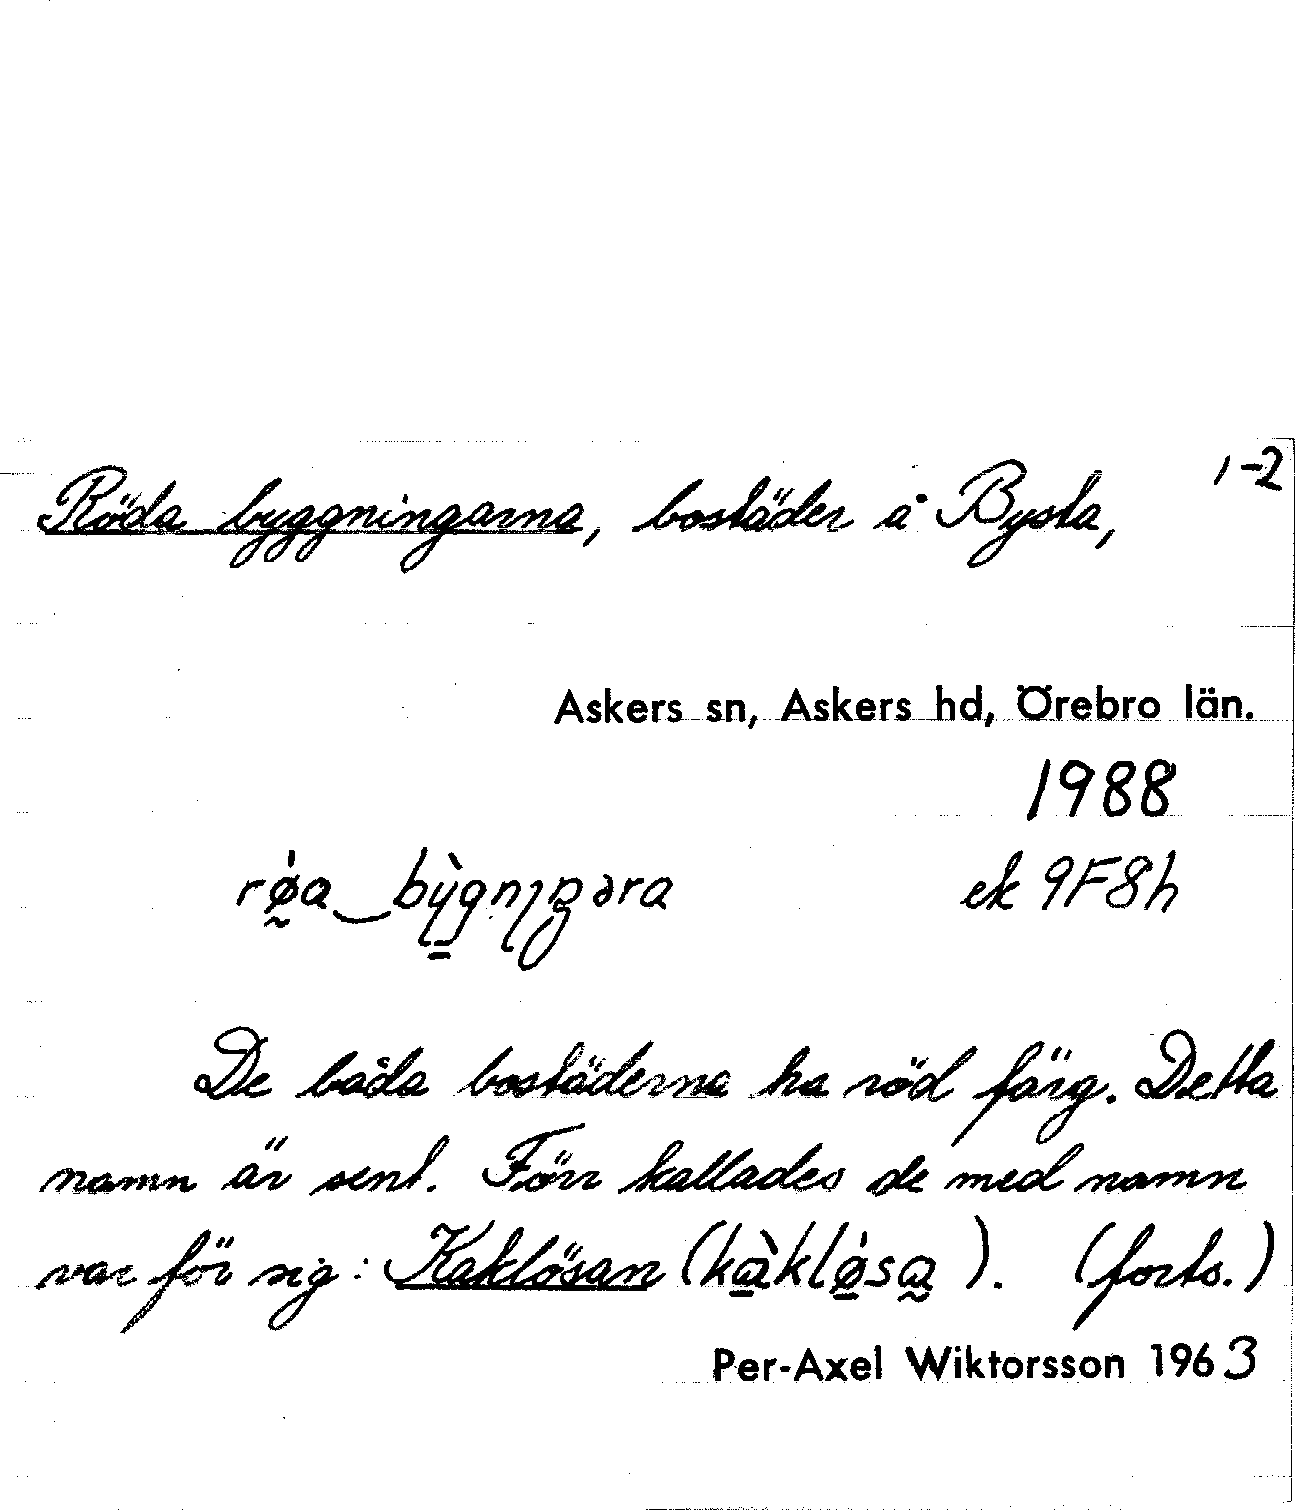 1-2
Röda byggningarna, bostäder å Bysta,
Askers sn, Askers hd, Örebro län.
1988
rǿ̰a‿bỳ̠gnıŋəra ek 9F8h
De båda bostäderna ha röd färg. Detta
namn är sent. Förr kallades de med namn
var för sig: Kaklösan (kà̠klǿ̠sa̰). (forts.)
Per-Axel Wiktorsson 1963